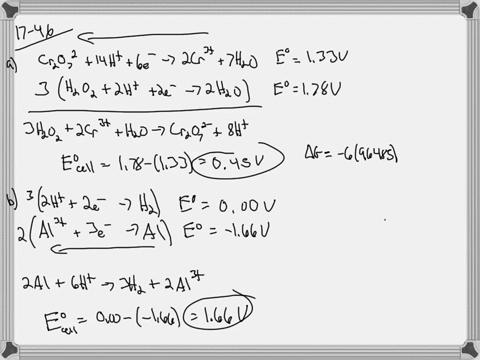 17-46
a) Cr₂O₇² + 14H⁺ + 6e⁻ → 2Cr³⁺ + 7H₂O E° = 1.33V
3 (H₂O₂ + 2H⁺ + 2e⁻ → 2H₂O) E° = 1.78V
3H₂O₂ + 2Cr³⁺ + H₂O → Cr₂O₇²⁻ + 8H⁺
E°cell = 1.78 - (1.33) = 0.45V ΔG = -6(96485)
b) 3(2H⁺ + 2e⁻ → H₂) E° = 0.00V
2(Al³⁺ + 3e⁻ → Al) E° = -1.66V
2Al + 6H⁺ → 3H₂ + 2Al³⁺
E°cell = 0.00 - (-1.66) = 1.66V